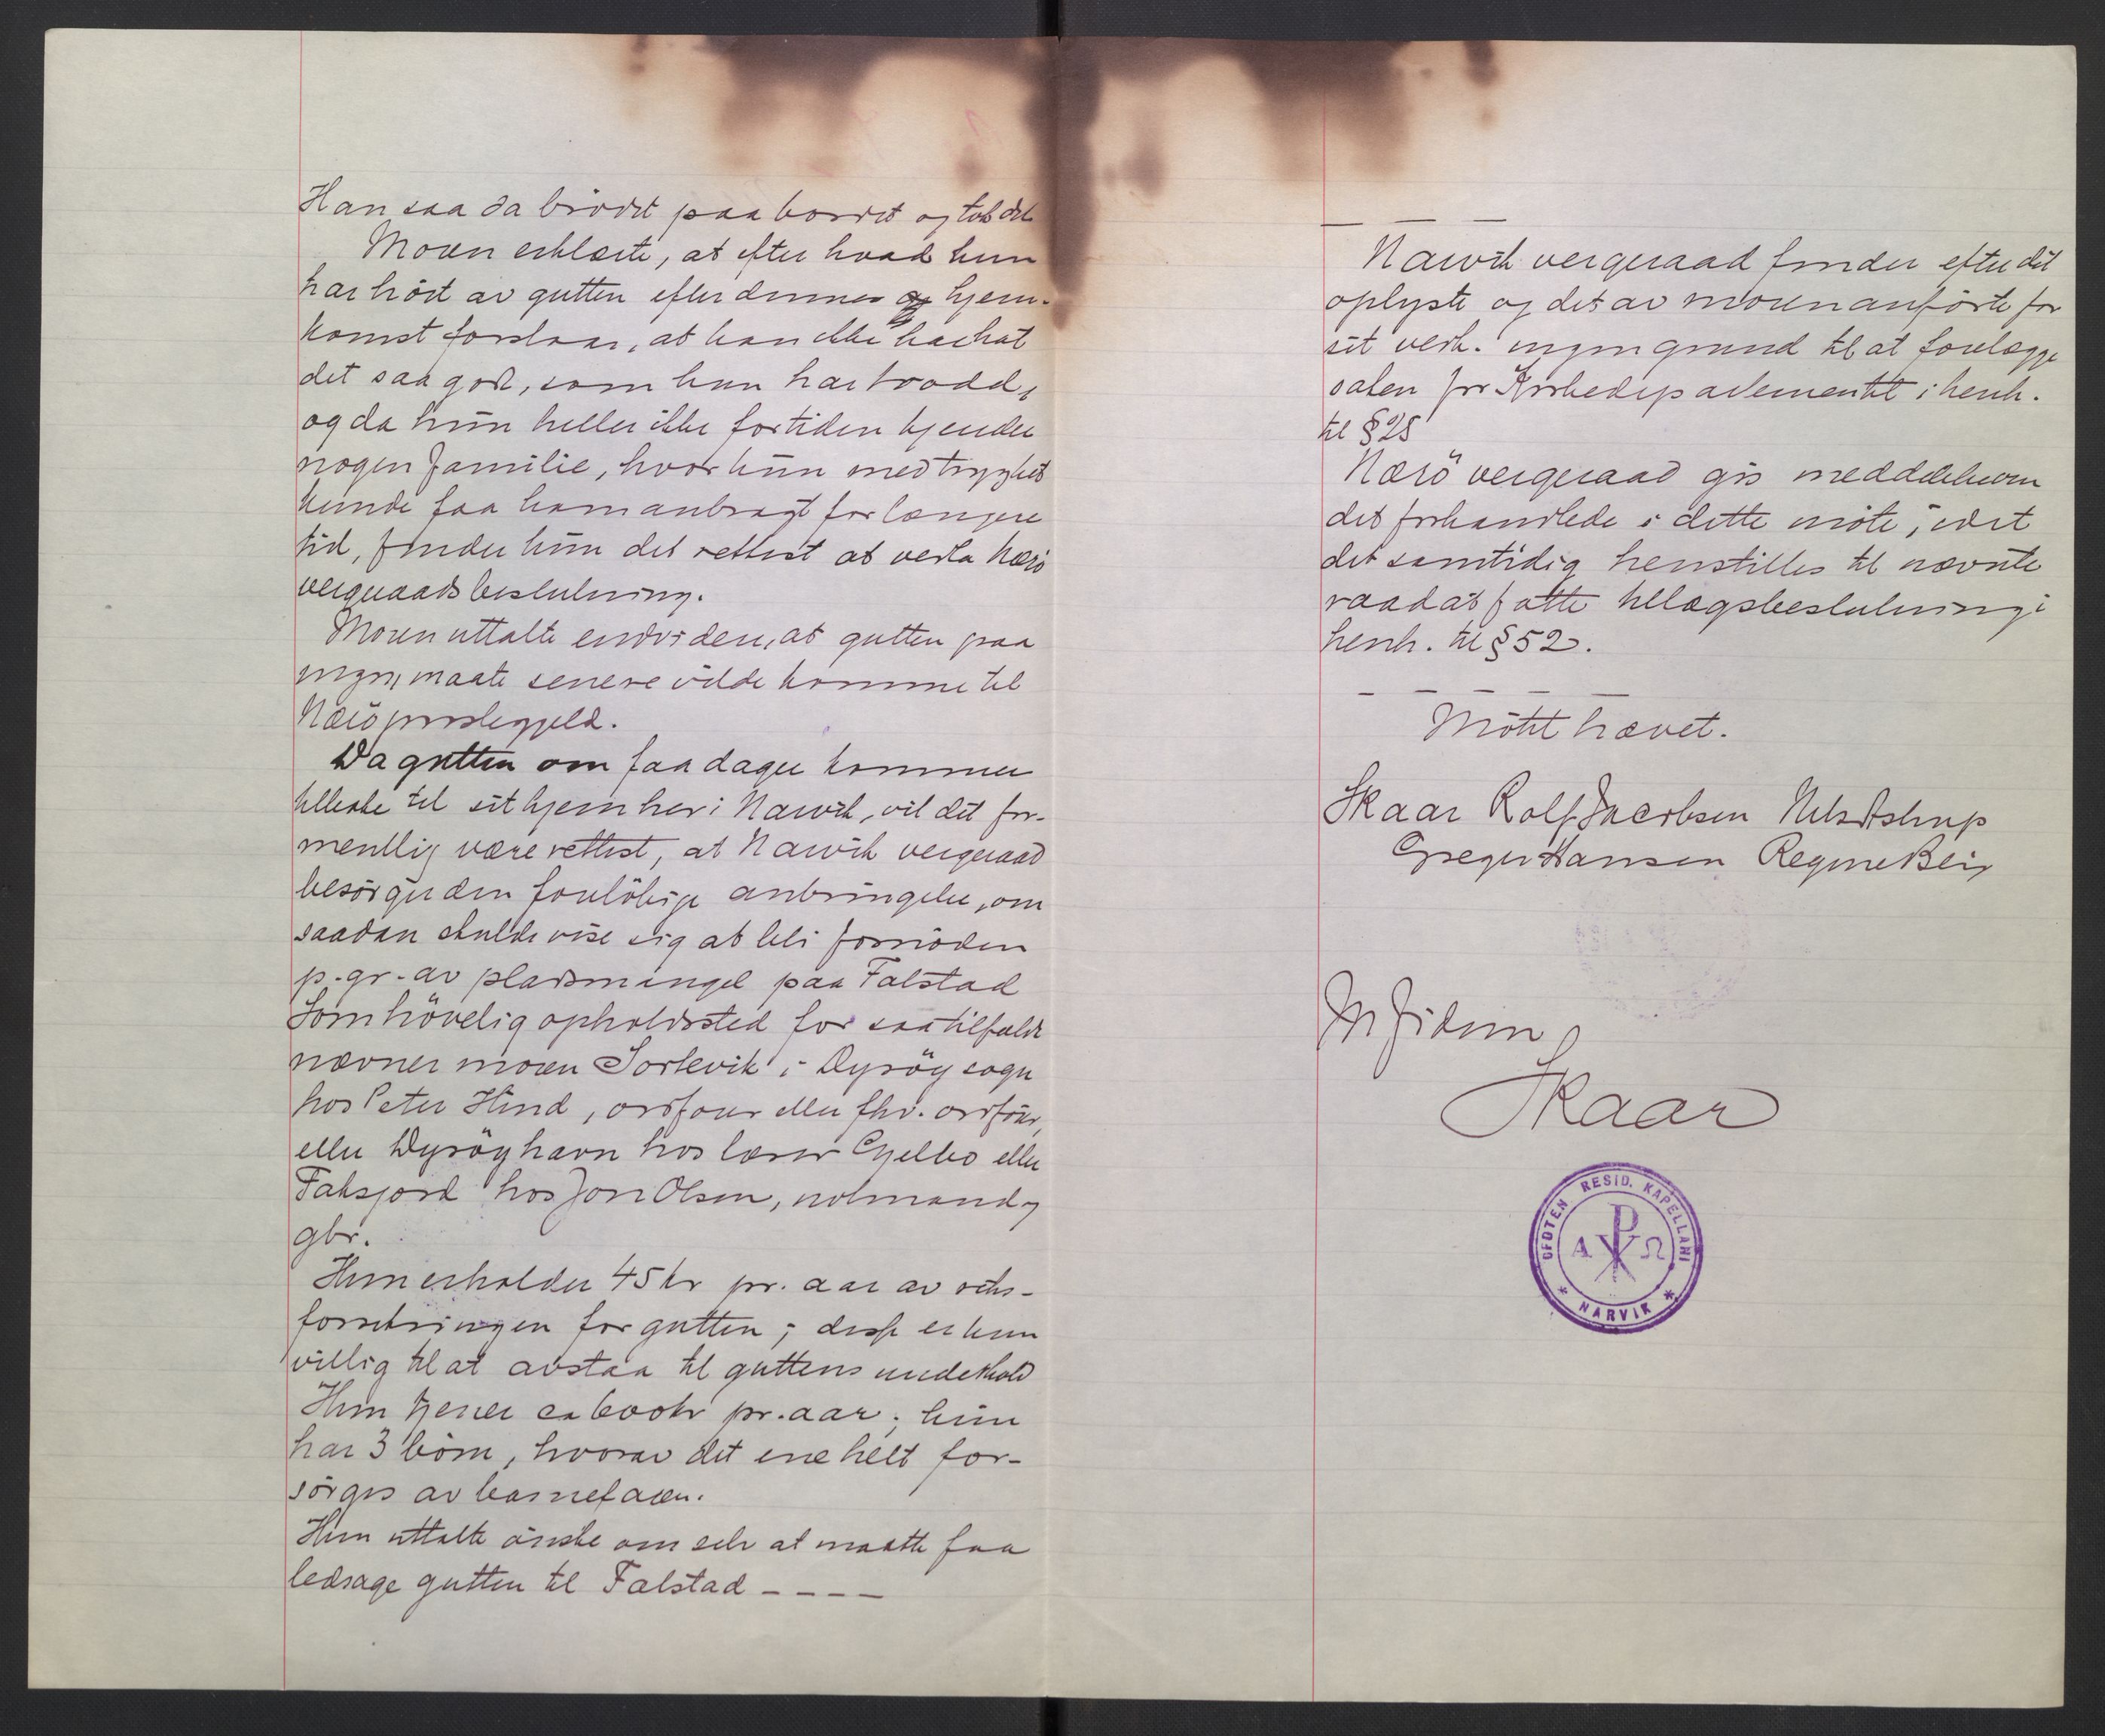 Han saa da brödet paa bordet og tok det
Moren erklærte, at efter hvad hun
har hört av gutten efter dennes hjem-
komst forstaar, at han ikke har hat
det saa godt, som hun har trodd,
og da hun heller ikke for tiden kjender
nogen familie, hvor hun med tryghet
kunde faa ham anbragt for længere
tid, finder hun det rettest at vedta Nærö
vergeraads beslutning.
Moren uttalte endvidere, at gutten paa
ingen maate senere vilde komme til
Nærö prestegjeld.
Da gutten om faa dager kommer
tilbake til sit hjem her i Narvik, vil det for-
mentlig være rettest, at Narvik vergeraad
besörger den forelöbige anbringelse, om
saadan skulde vise sig at bli fornöden
p. gr. av pladsmangel paa Falstad
Som hövelig opholdssted for saa tilfælde
nævner moren Sörlevik i Dyröy sogn
hos Peter Hind, ordförer eller fhv. ordförer,
eller Dyröyhavn hos lærer Gjelbo eller
Faksfjord hos Jon Olsen, notmand og
gbr.
Hun erholder 45 kr pr. aar av riks-
forsikringen for gutten; disse er hun
villig til at avstaa til guttens underhold
Hun tjener ca 600 kr pr. aar; hun
har 3 börn, hvorav det ene helt for-
sörges av barnefaren.
Hun uttalte önske om selv at maatte faa
ledsage gutten til Falstad - - - -
— — —
Narvik vergeraad finder efter det
oplyste og det av moren anförte for
sit vedk. ingen grund til at forelægge
saken for Kirkedepartementet i henh.
til § 25
Nærö vergeraad gis meddelelse om
det forhandlede i dette möte, idet
det samtidig henstilles til nævnte
raad at fatte tillægsbeslutning i
henh. til § 52.
— — — — —
Mötet hævet.
Skaar Rolf Jacobsen Nils Astrup
Greger Hansen Regine Beij
In fidem
Skaar
OFOTEN RESID. KAPELLANI
A Ω
* NARVIK *